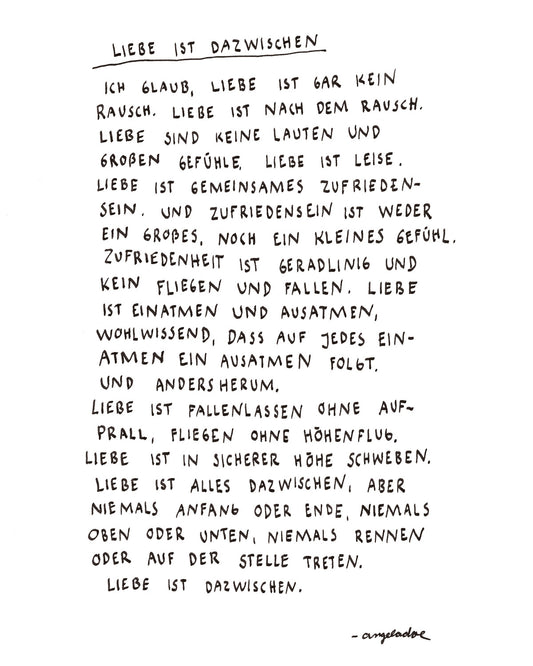 LIEBE IST DAZWISCHEN
ICH GLAUB, LIEBE IST GAR KEIN
RAUSCH. LIEBE IST NACH DEM RAUSCH.
LIEBE SIND KEINE LAUTEN UND
GROßEN GEFÜHLE, LIEBE IST LEISE.
LIEBE IST GEMEINSAMES ZUFRIEDEN-
SEIN. UND ZUFRIEDENSEIN IST WEDER
EIN GROßES, NOCH EIN KLEINES GEFÜHL.
ZUFRIEDENHEIT IST GERADLINIG UND
KEIN FLIEGEN UND FALLEN. LIEBE
IST EINATMEN UND AUSATMEN,
WOHLWISSEND, DASS AUF JEDES EIN-
ATMEN EIN AUSATMEN FOLGT.
UND ANDERSHERUM.
LIEBE IST FALLENLASSEN OHNE AUF-
PRALL, FLIEGEN OHNE HÖHENFLUG.
LIEBE IST IN SICHERER HÖHE SCHWEBEN.
LIEBE IST ALLES DAZWISCHEN, ABER
NIEMALS ANFANG ODER ENDE, NIEMALS
OBEN ODER UNTEN, NIEMALS RENNEN
ODER AUF DER STELLE TRETEN.
LIEBE IST DAZWISCHEN.
- angeladoe